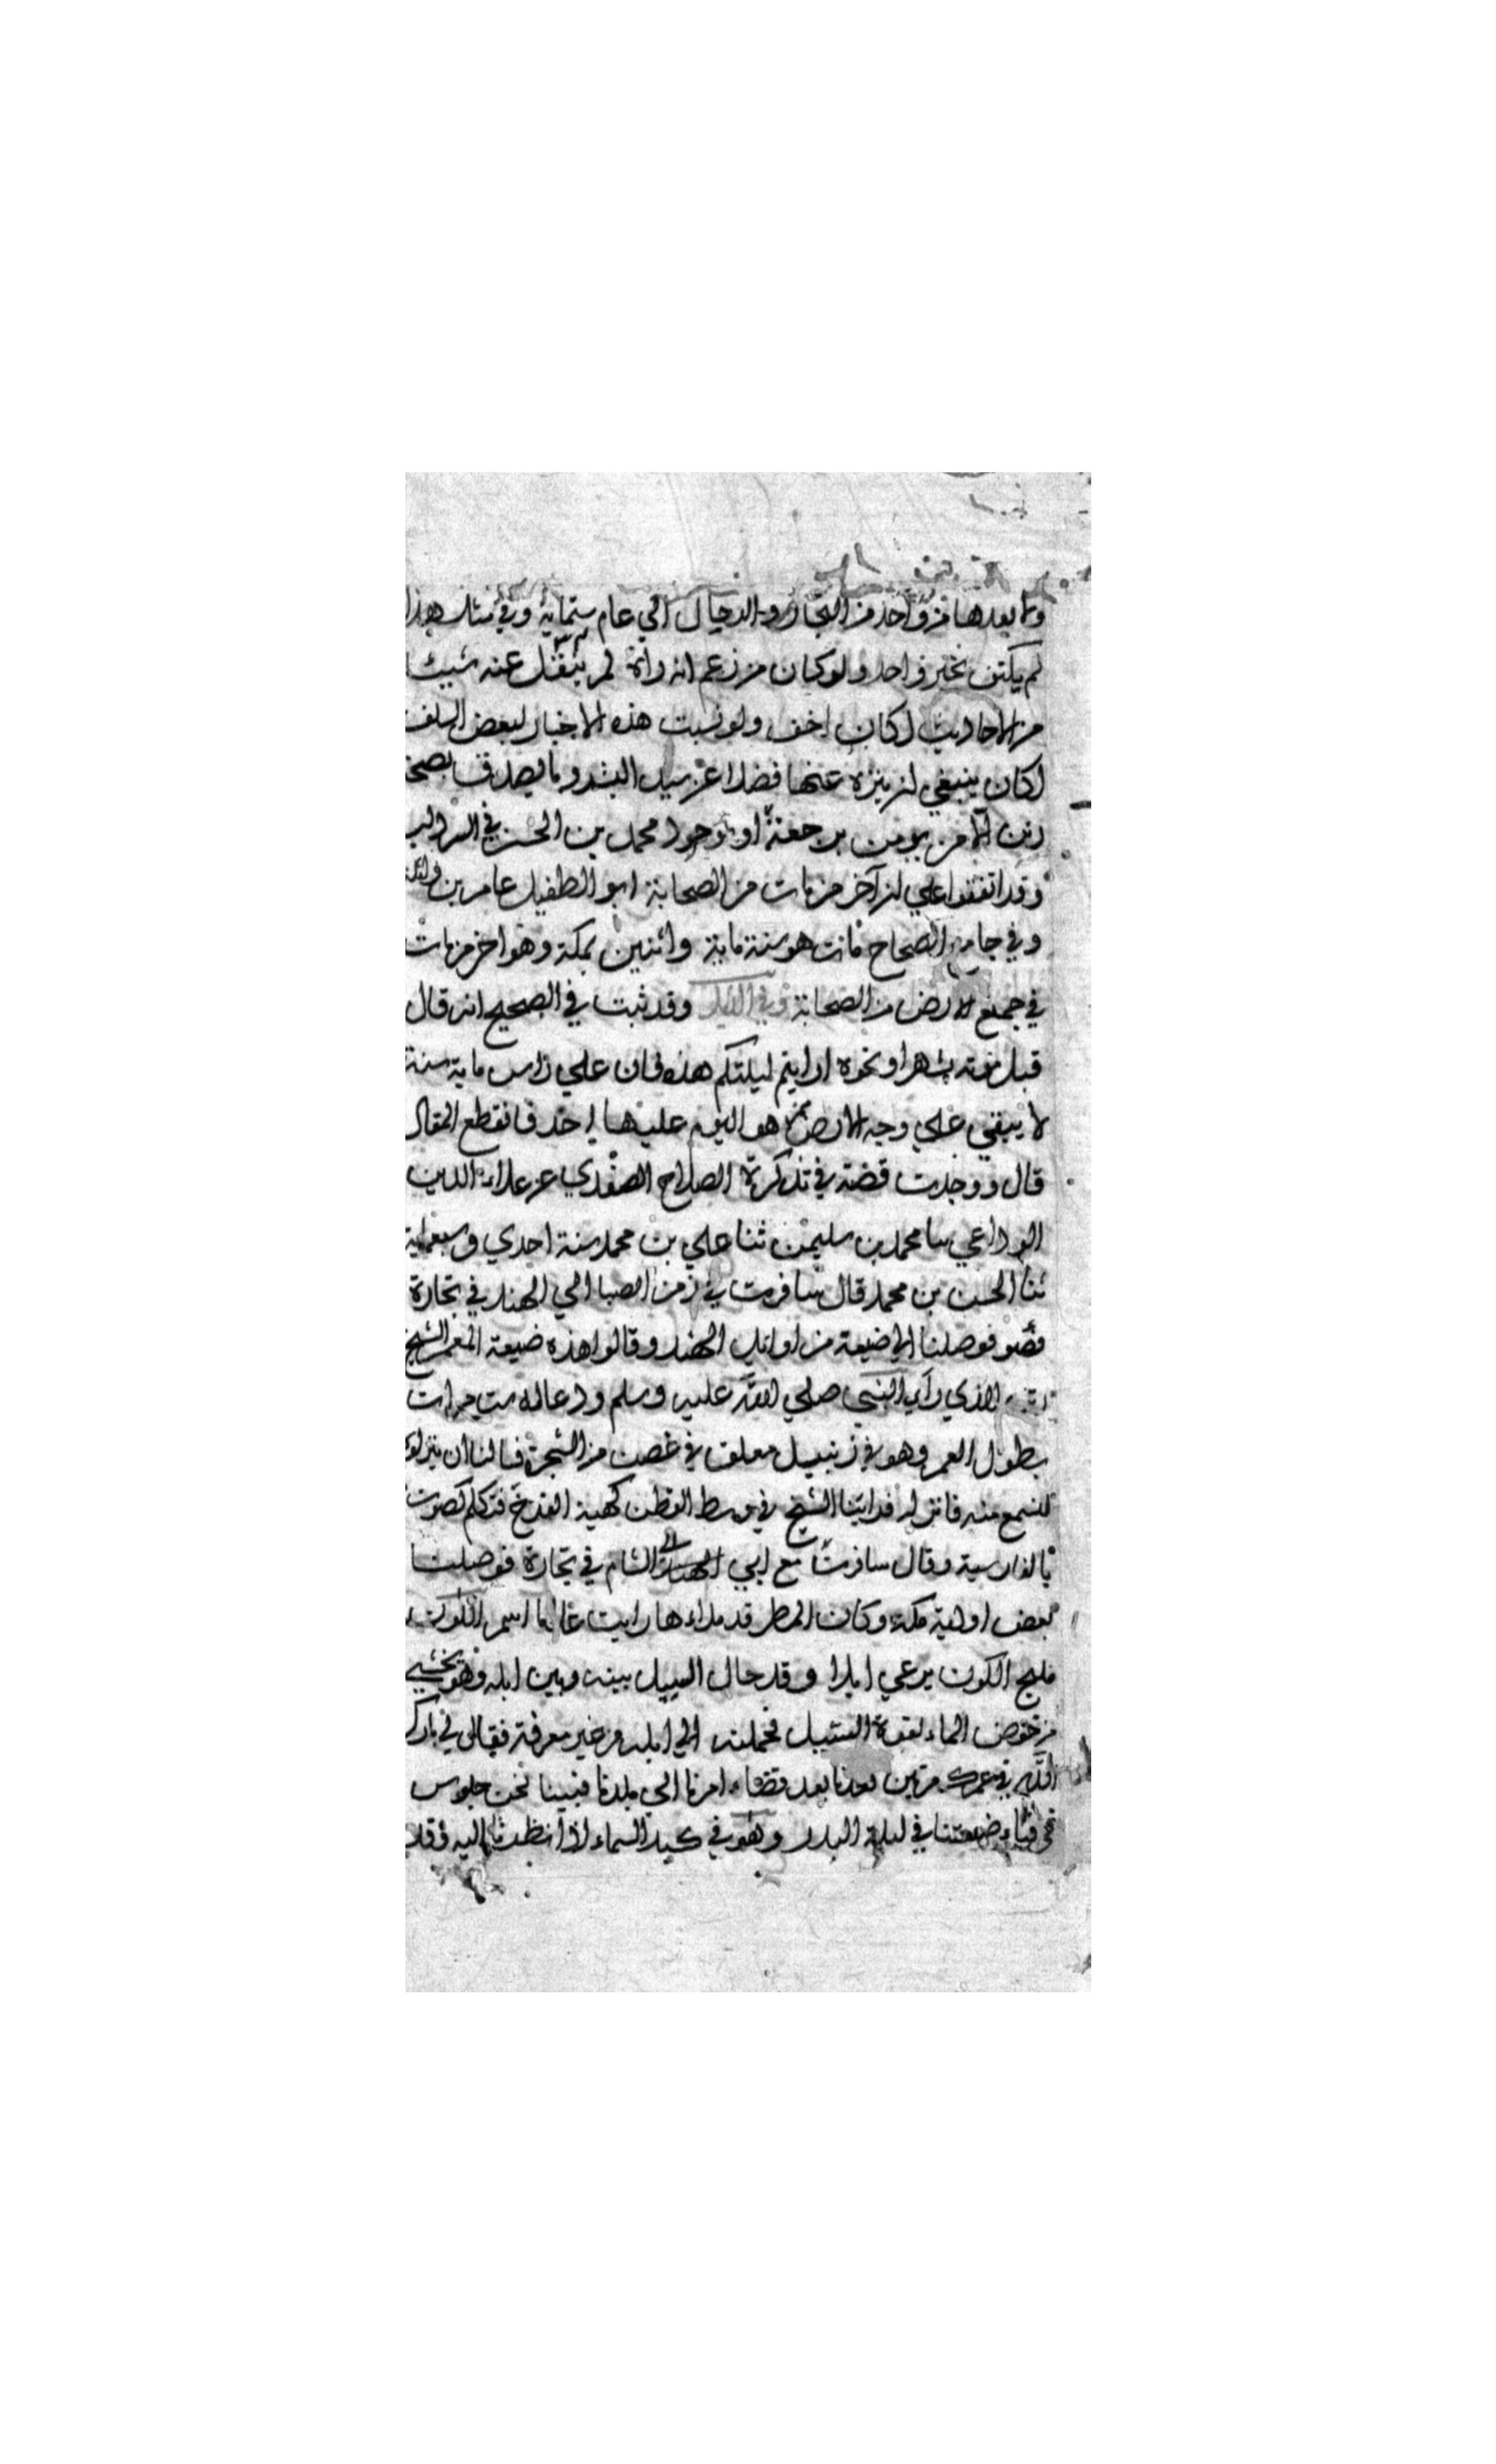 وما بعدها من واحد من التجار والدجال الي عام ستماية وفي مثل هذا
لم يكتف بخبر واحد ولو كان من زعم انه راه لم ينقل عنه شيئا
من الاحاديث لكان اخف ولو نسبت هذه الاخبار لبعض السلف
لكان ينبغي ان ينزه عنها فضلا عن سيد البشر وما يصدق بصحة
رتن الا من يومن برجعة او بوجود محمد بن الحسن في السرداب
وقد اتفقوا علي ان آخر من مات من الصحابة ابو الطفيل عامر بن واثلة
وفي جامع الصحاح مات هو سنة ماية واثنين بمكة وهو اخر من مات
في جميع الارض من الصحابة وقد ثبت في الصحيح انه قال
قبل موته بشهر او نحوه ارايتم ليلتكم هذه فان علي راس ماية سنة
لا يبقي علي وجه الارض ممن هو اليوم عليها احد فانقطع المقال
قال ووجدت قصته في تذكرة الصلاح الصفدي عن علاء الدين
الوداعي سا محمد بن سليمن ثنا علي بن محمد سنة احدي وسبعماية
ثنا الحسن بن محمد قال سافرت في زمن الصبا الي الهند في تجارة
فوصلنا الي ضيعة من اوايل الهند وقالوا هذه ضيعة المعمر الشيخ
رتن الذي راي النبي صلي الله عليه وسلم ودعا له ست مرات
بطول العمر وهو في زنبيل معلق في غصن من الشجرة فسالنا ان ينزلوه
لنسمع منه فانزلوه فراينا الشيخ في وسط القطن كهية الفرخ فتكلم كصوت
بالفارسية وقال سافرت مع ابي الي الشام في تجارة فوصلنا
بعض اودية مكة وكان المطر قد ملاءها رايت غلاما اسمر اللون
مليح الكون يرعي ابلا وقد حال السيل بينه وبين ابله وهو يخشي
من خوض الماء لقوة السيل فحملته الي ابله من غير معرفة فقال لي بارك
الله في عمرك مرتين فعدنا بعد قضاء امرنا الي بلدنا فبينا نحن جلوس
في فناء ضيعتنا في ليلة البدر وهو في كبد السماء اذ انظرنا اليه وقد